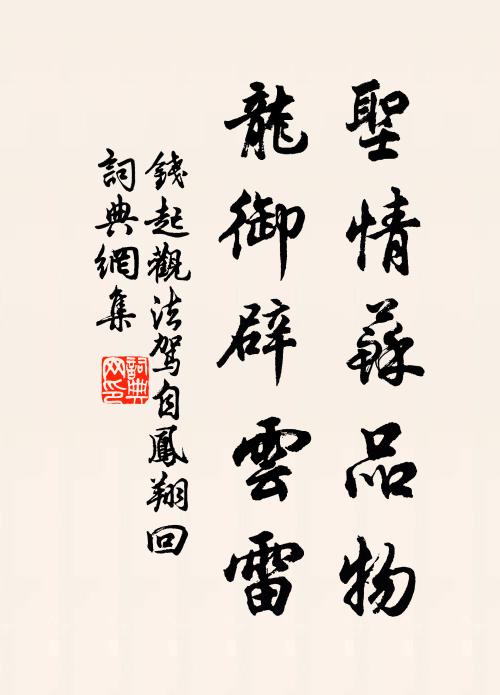 聖情蘇品物
龍御辟雲雷
錢起觀法駕自鳳翔回
詞典網集
詞典
网印